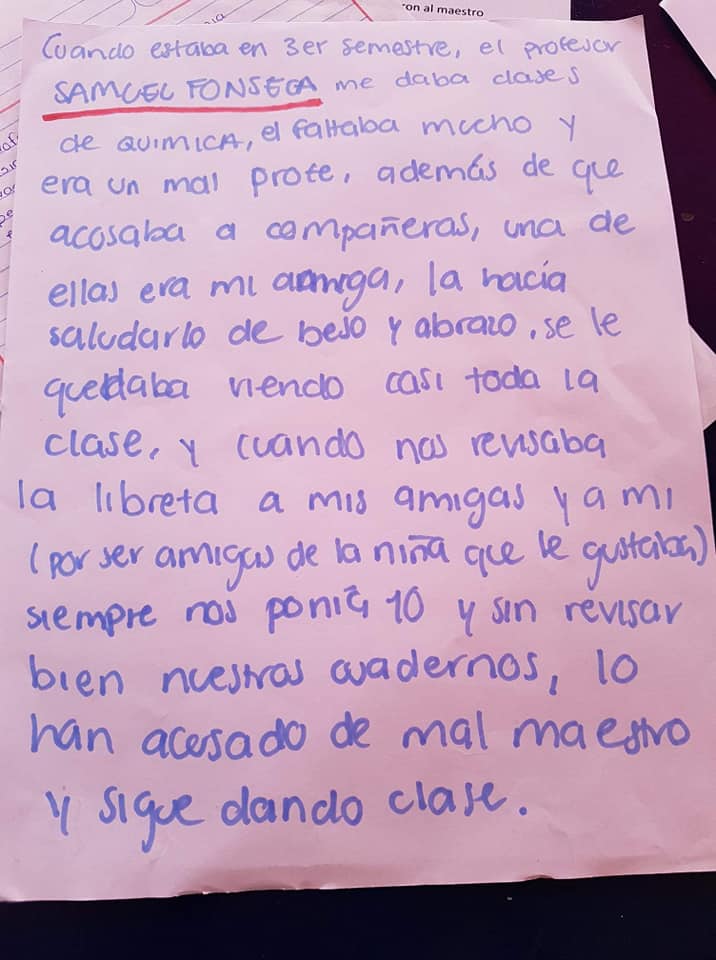 on al maestro
Cuando estaba en 3er semestre, el profesor
SAMUEL FONSECA me daba clases
de QUIMICA, el faltaba mucho y
era un mal profe, además de que
acosaba a compañeras, una de
ellas era mi amiga, la hacía
saludarlo de beso y abrazo, se le
quedaba viendo casi toda la
clase, y cuando nos revisaba
la libreta a mis amigas y a mi
(por ser amigas de la niña que le gustaba)
siempre nos ponía 10 y sin revisar
bien nuestros cuadernos, lo
han acusado de mal maestro
y sigue dando clase.